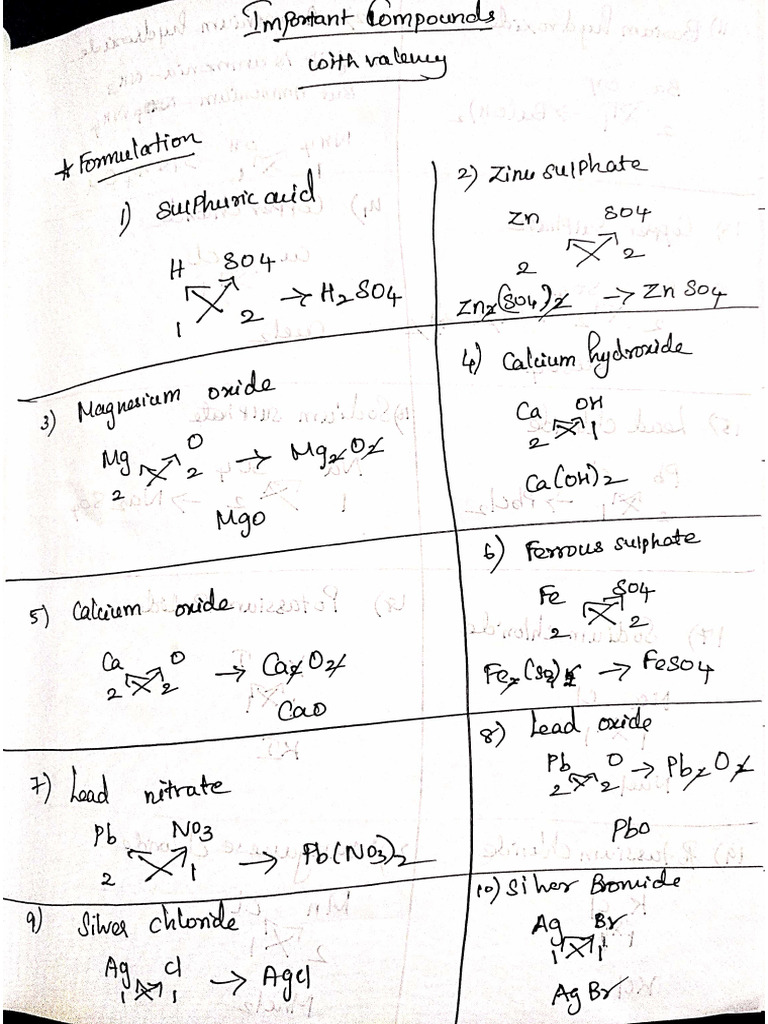 Important Compounds
with valency
* Formulation
1) Sulphuric acid
H SO4
1 2 → H2SO4
2) Zinc sulphate
Zn SO4
2 2
Zn2(SO4)2 → ZnSO4
3) Magnesium oxide
Mg O → Mg2O2
2 2
MgO
4) Calcium hydroxide
Ca OH
2 1
Ca(OH)2
5) Calcium oxide
Ca O → Ca2O2
2 2
CaO
6) Ferrous sulphate
Fe SO4
2 2
→ FeSO4
7) Lead nitrate
Pb NO3
2 1 → Pb(NO3)2
8) Lead oxide
Pb O → Pb2O2
2 2
PbO
9) Silver chloride
Ag Cl → AgCl
1 1
10) Silver Bromide
Ag Br
1 1
AgBr